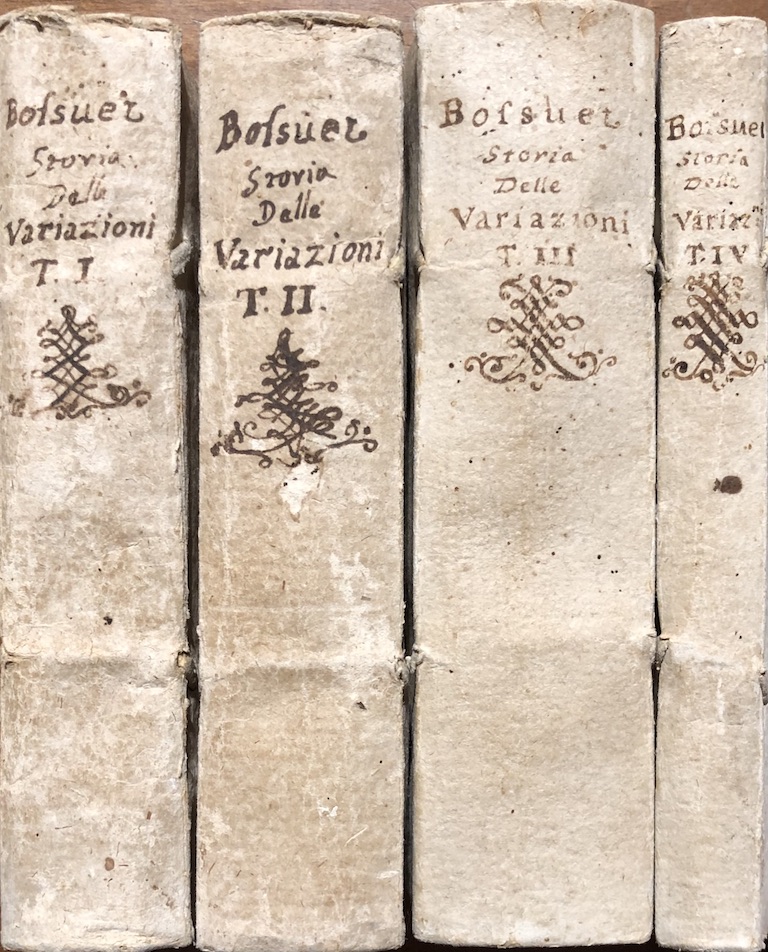 Boſsuet
Storia
Delle
Variazioni
T. I
Boſsuet
Storia
Delle
Variazioni
T. II.
Boſsuet
Storia
Delle
Variazioni
T. III
Boſsuet
Storia
Delle
T. IV